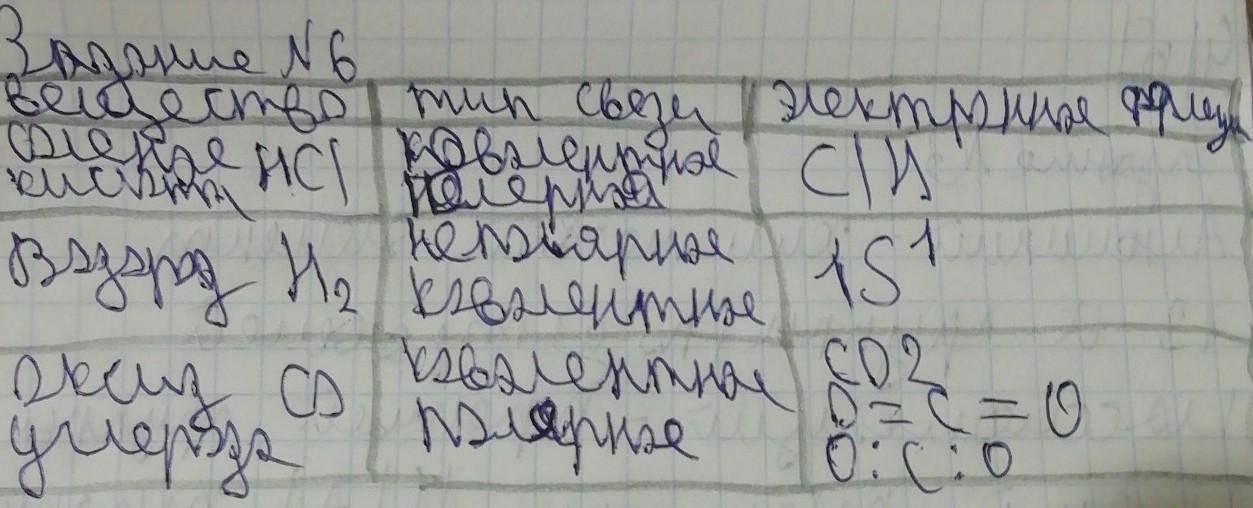 Задание N6
вещество тип связи электронная формула
соленая кислота HCl ковалентная полярная ClH
Водород H2 неполярная ковалентная 1S¹
Оксид углерода CO ковалентная полярная CO2
O=C=O
O:C:O